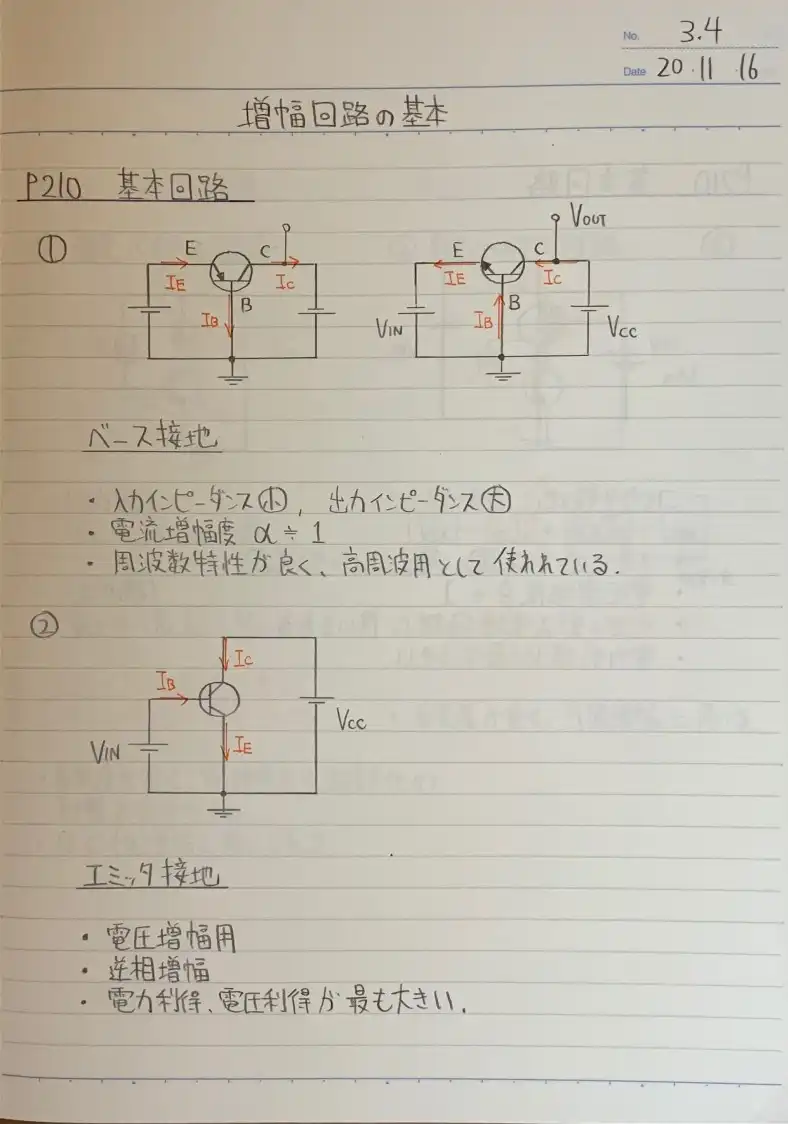 No. 3.4
Date 20・11 16
増幅回路の基本
P210 基本回路
①
E C
IE IC
IB B
VOUT
E C
IE IC
IB B
VIN
VCC
ベース接地
・入力インピーダンス㊙小, 出力インピーダンス大
・電流増幅度 α≒1
・周波数特性が良く、高周波用として使われている.
②
IC
IB
VCC
VIN IE
エミッタ接地
・電圧増幅用
・逆相増幅
・電力利得、電圧利得が最も大きい.